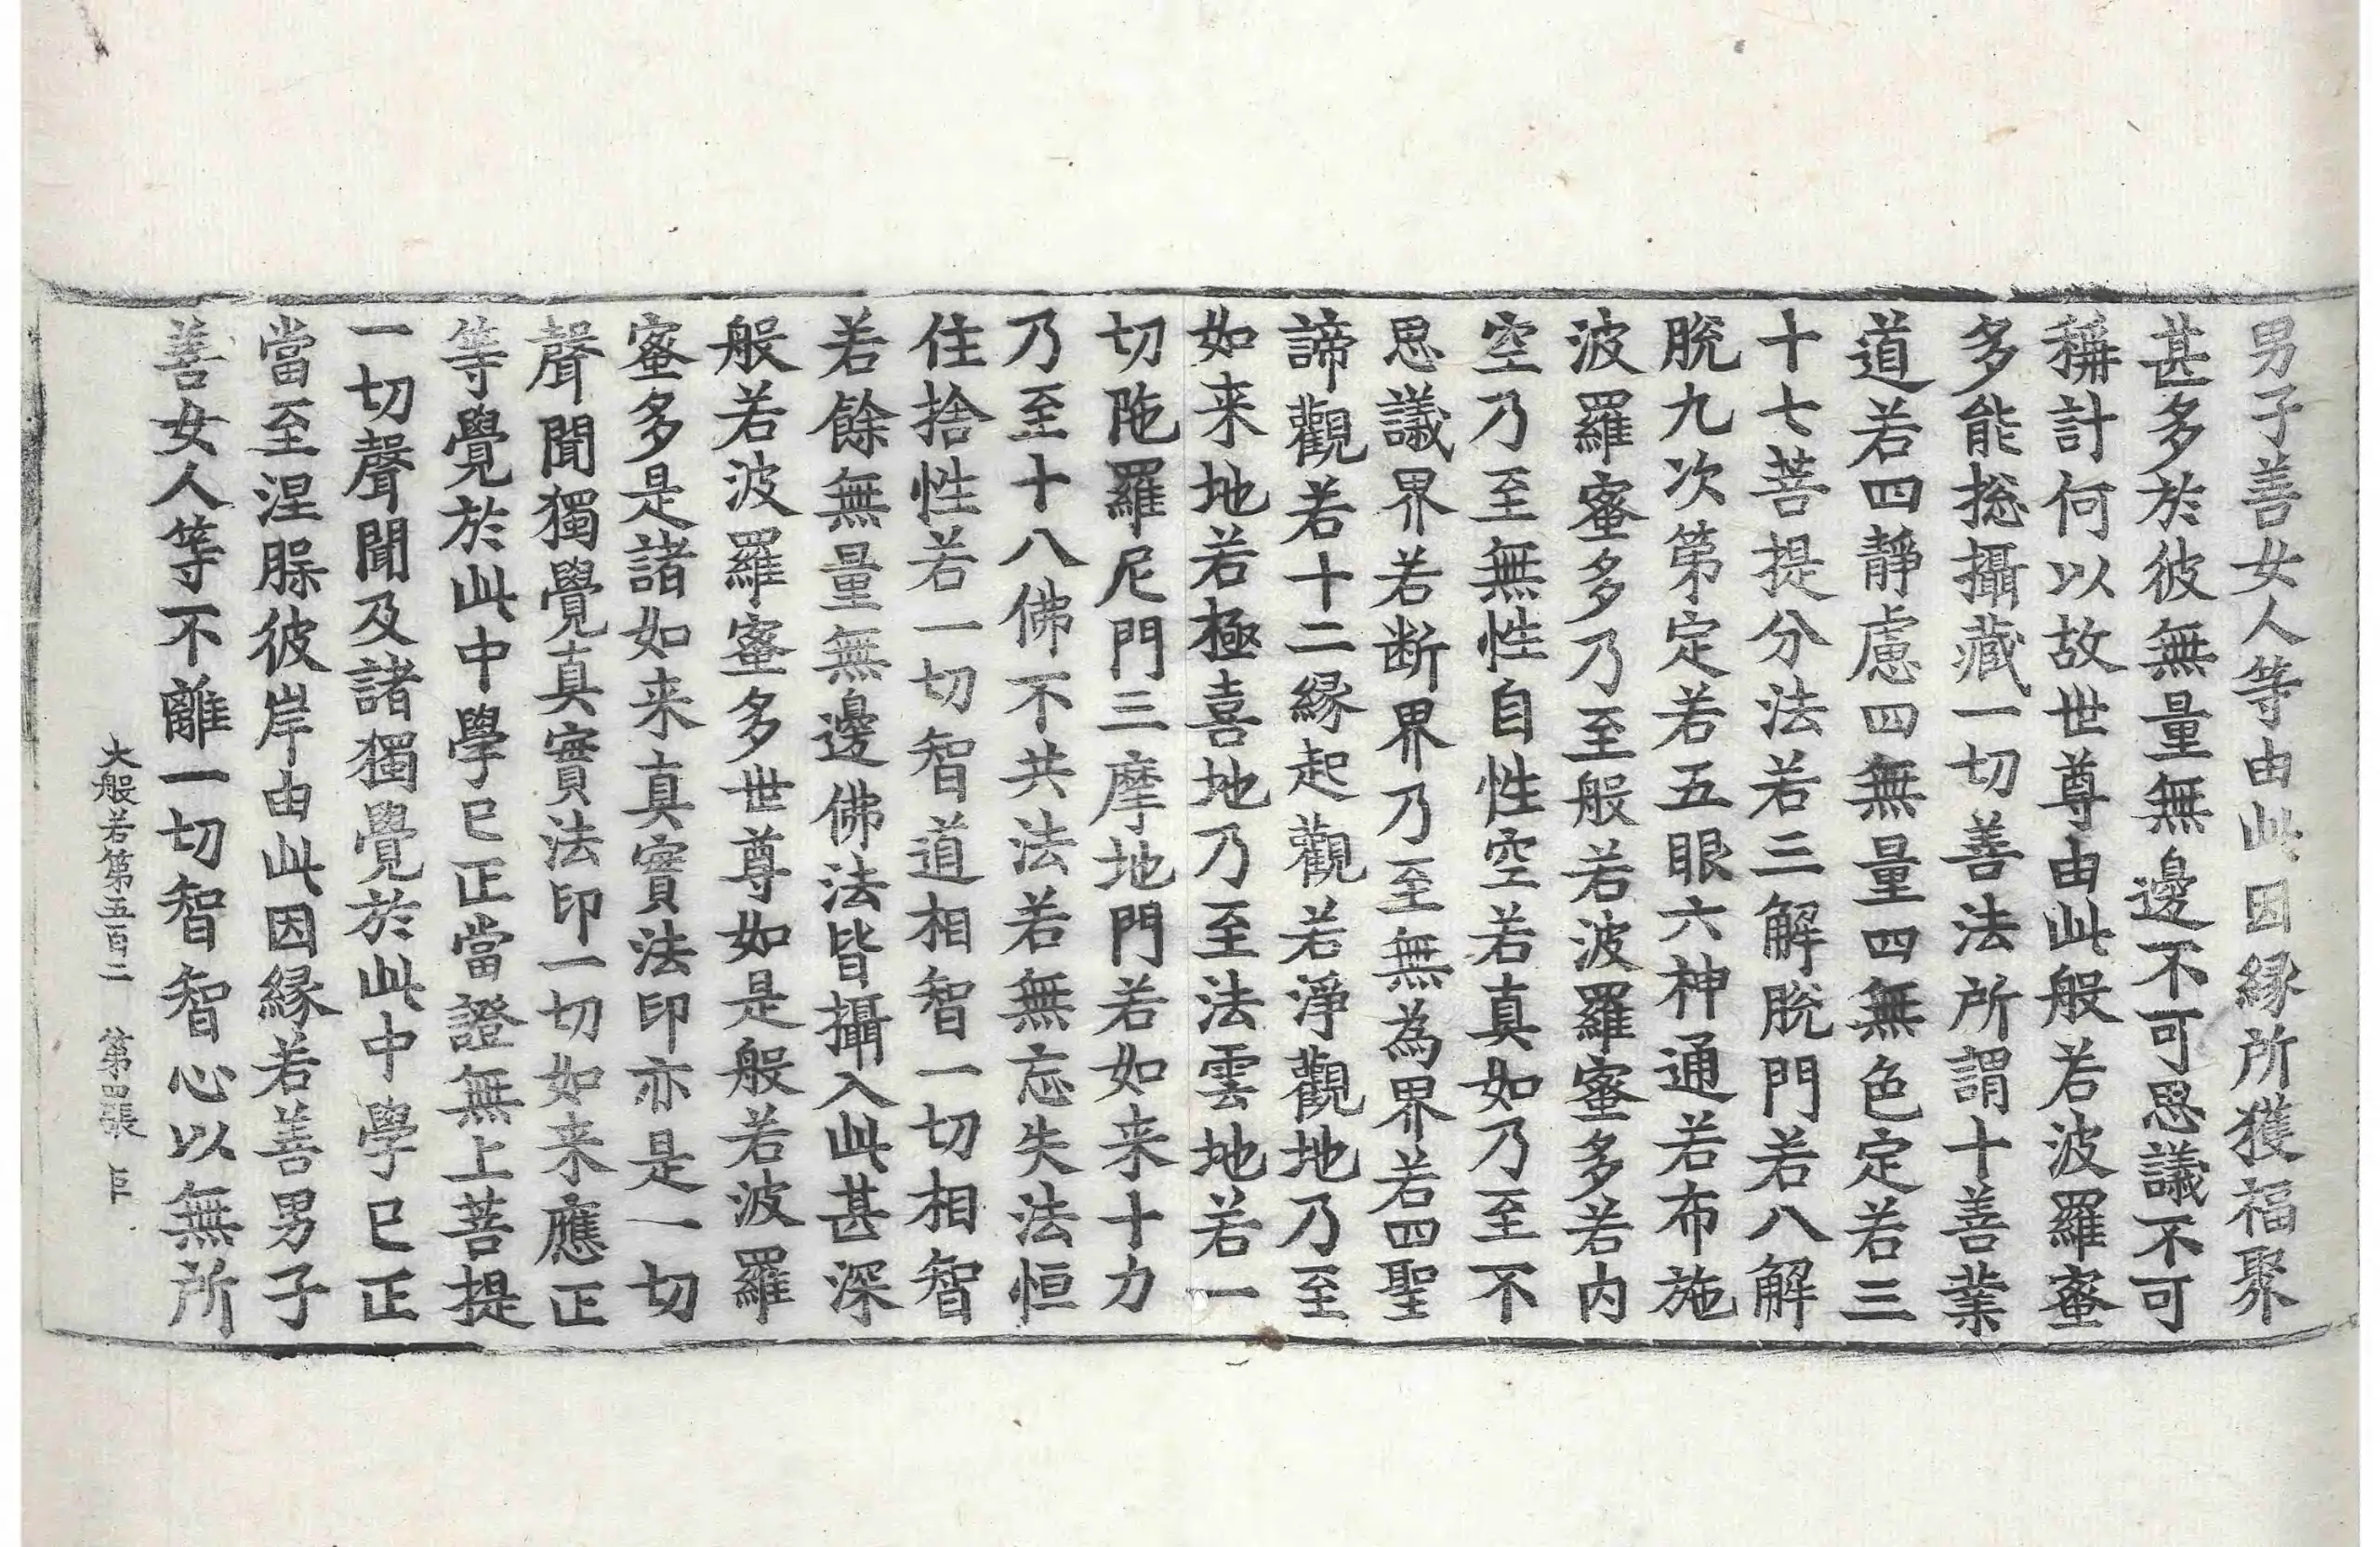 男子善女人等由此因縁所獲福聚
甚多於彼無量無邊不可思議不可
稱計何以故世尊由此般若波羅蜜
多能揔攝藏一切善法所謂十善業
道若四靜慮四無量四無色定若三
十七菩提分法若三解脫門若八解
脫九次第定若五眼六神通若布施
波羅蜜多乃至般若波羅蜜多若内
空乃至無性自性空若真如乃至不
思議界若断界乃至無為界若四聖
諦觀若十二縁起觀若淨觀地乃至
如来地若極喜地乃至法雲地若一
切陁羅尼門三摩地門若如来十力
乃至十八佛不共法若無忘失法恒
住捨性若一切智道相智一切相智
若餘無量無邊佛法皆攝入此甚深
般若波羅蜜多世尊如是般若波羅
蜜多是諸如来真實法印亦是一切
聲聞獨覺真實法印一切如来應正
等覺於此中學已正當證無上菩提
一切聲聞及諸獨覺於此中學已正
當至涅槃彼岸由此因縁若善男子
善女人等不離一切智智心以無所
大般若第五百二 第四張 臣